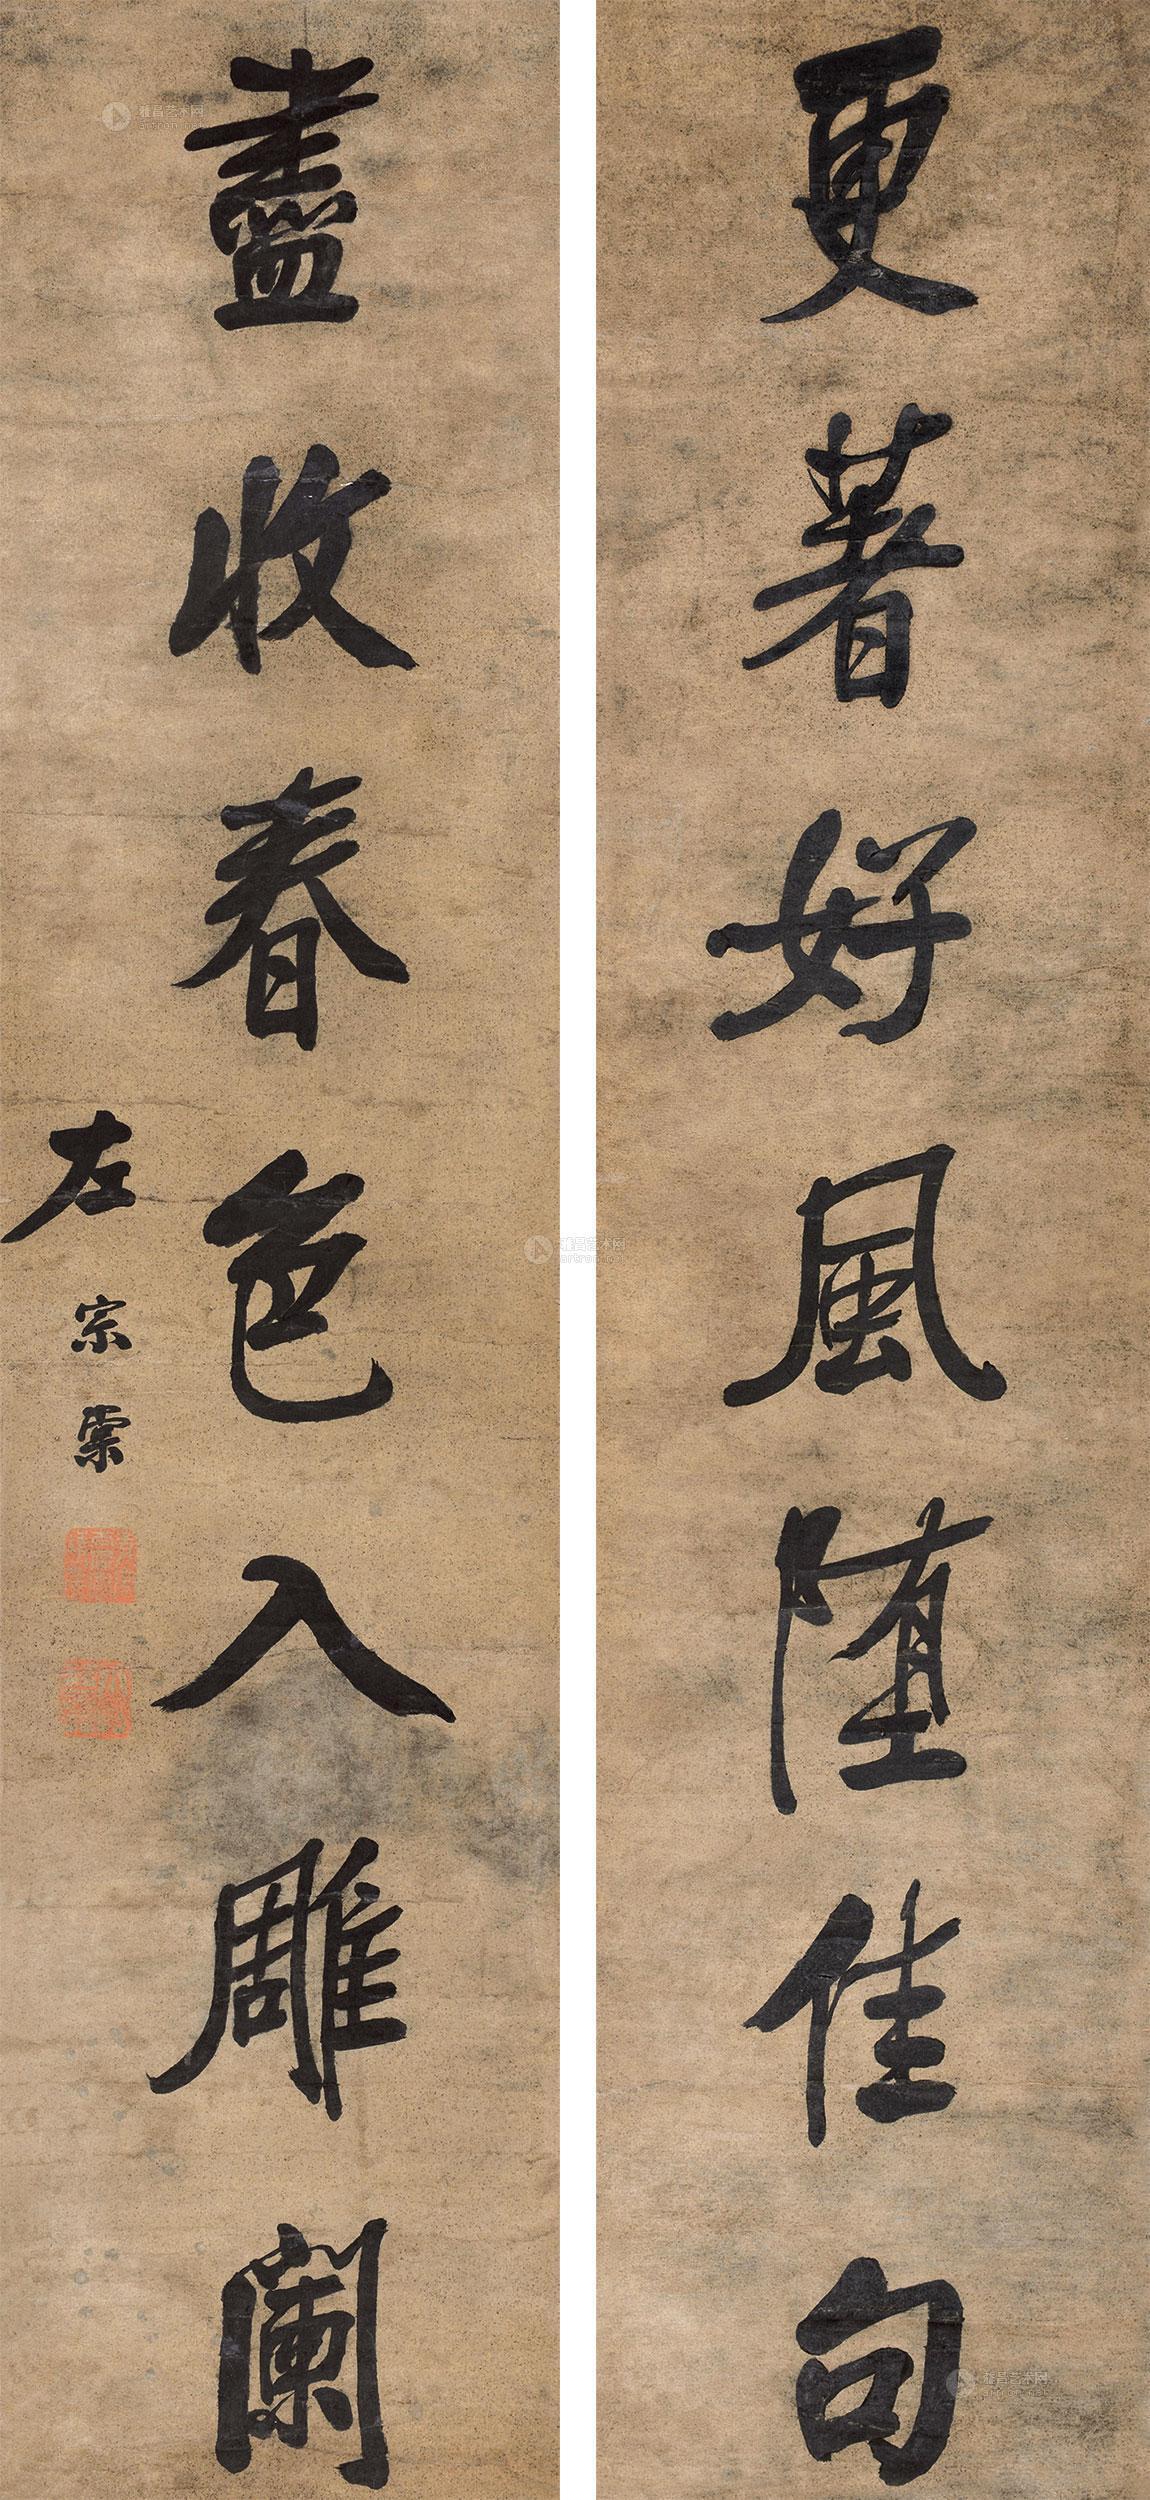 更著好風堕佳句
盡收春色入雕闌
左宗棠
雅昌艺术网
artron.net
雅昌艺术网
artron.net
雅昌艺术网
artron.net